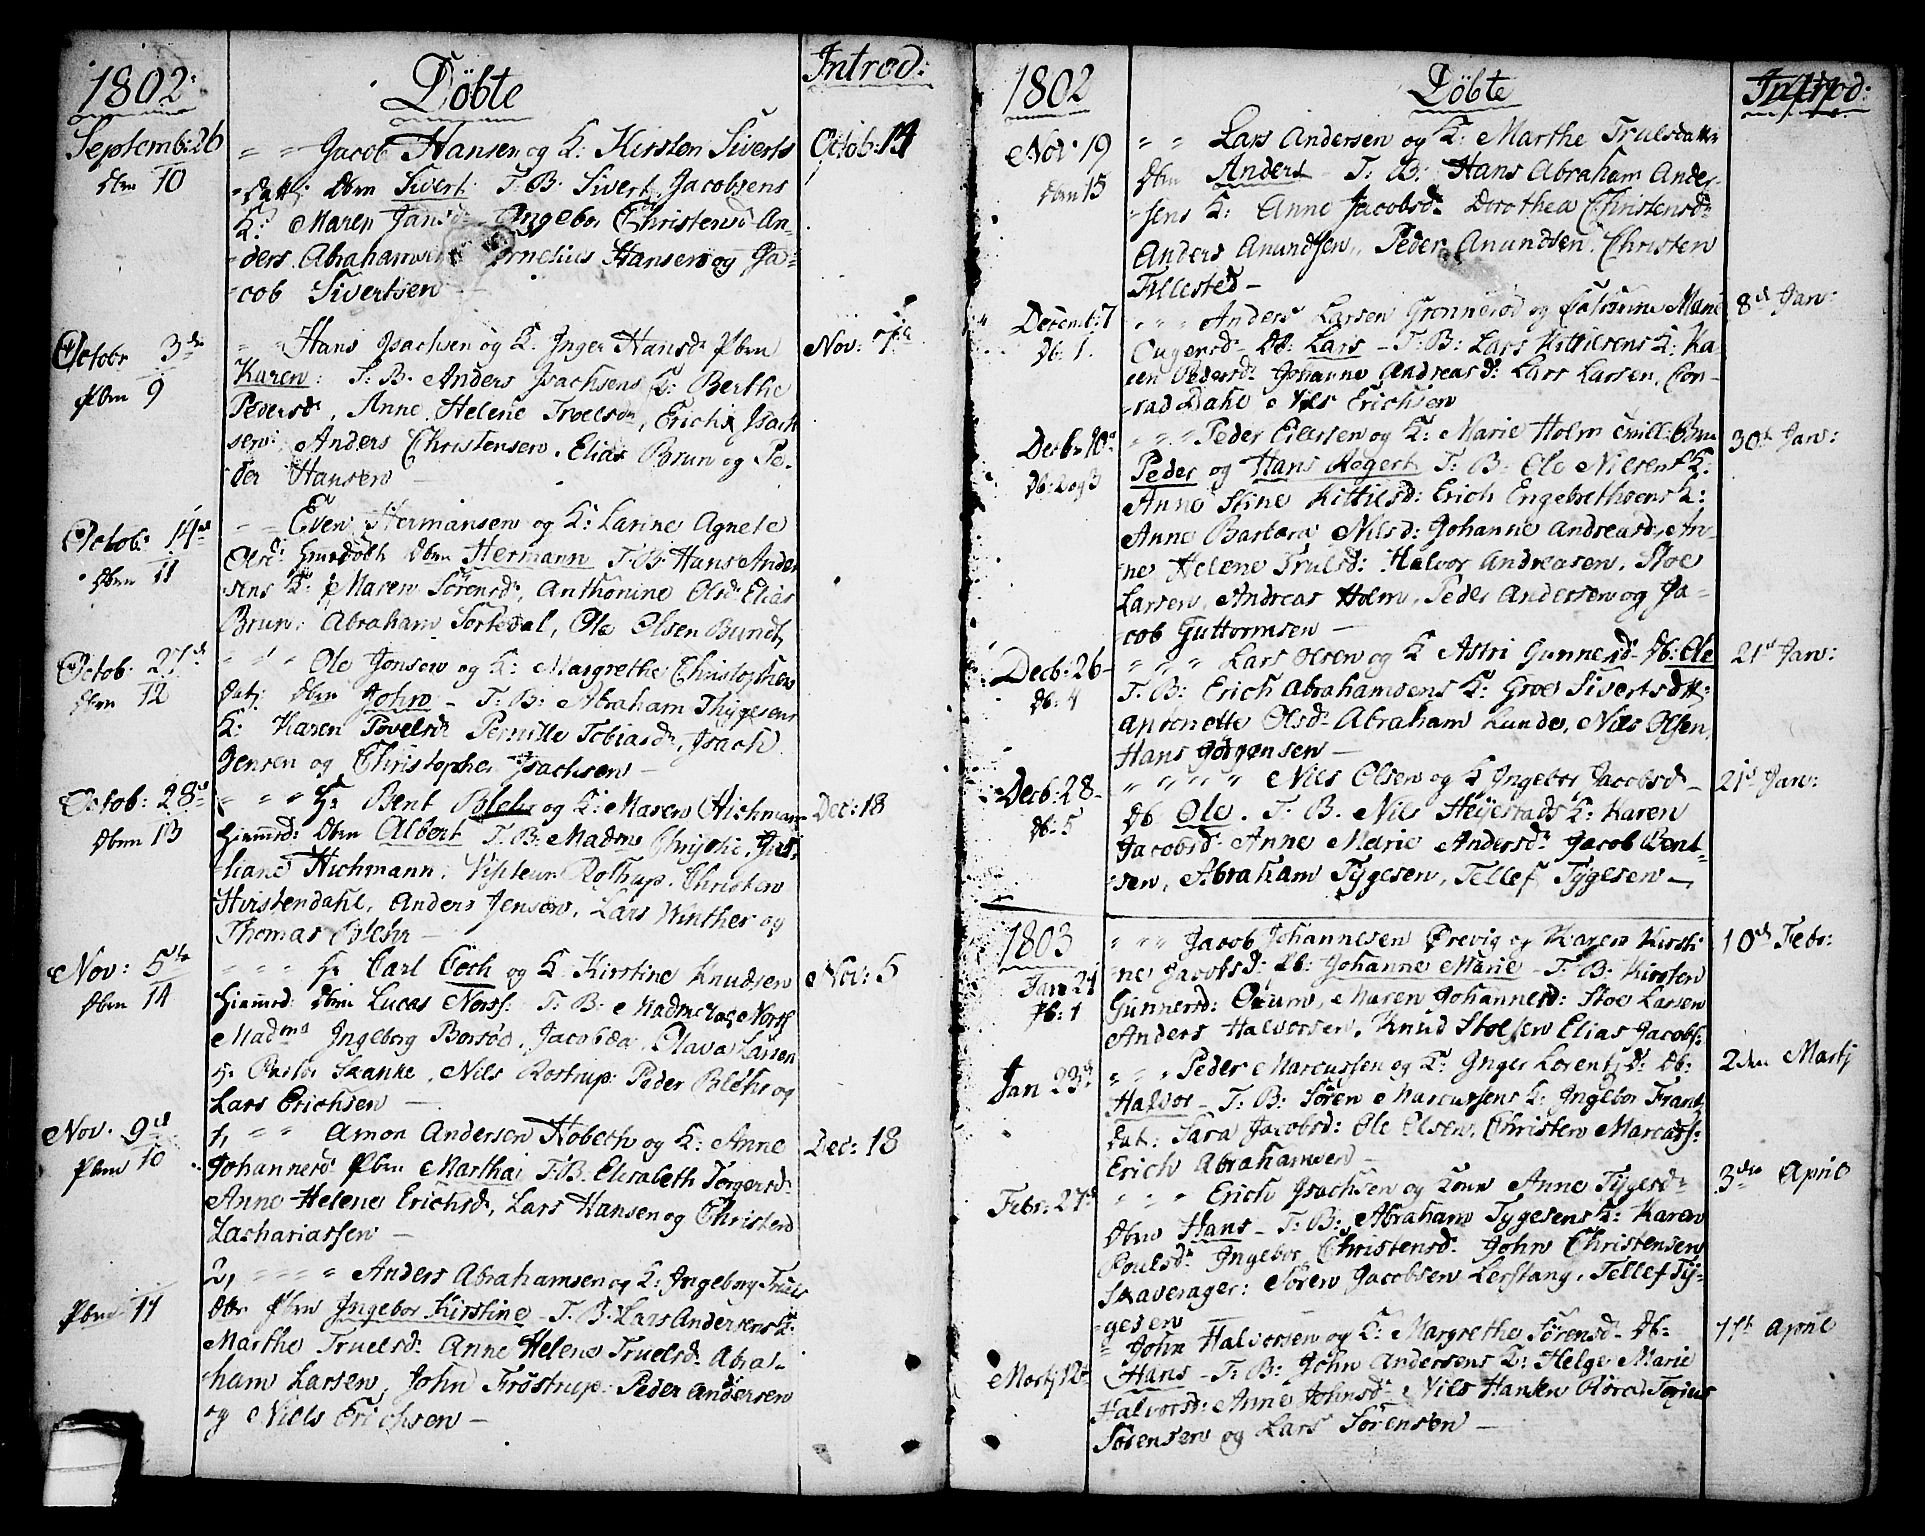 1802
Döbte
Introd:
Septemb: 26
Dbm 10
" " Jacob Hansen og K: Kirsten Siverts
Datt: Dbm Sivert T. B. Sivert Jacobsens
K: Maren Jansdr Ingebor Christensd An-
ders Abrahamsen Cornelius Hansen og Ja-
cob Sivertsen -
Octob: 14
Octobr 3de
Pbm 9
" " Hans Isachsen og K: Inger Hansdr Pbm
Karen: T. B. Anders Isachsens K: Berthe
Pedersdr, Anne Helene Troelsdr, Erich Isach
sen, Anders Christensen, Elias Brun og Pe-
der Hansen -
Nov: 7de
Octob: 14de
Dbm 11
" " Even Hermansen og K: Larine Agnete
Olsdr Dbm Hermann T. B. Hans Ander
sens K: Maren Sörensdr, Anthonine Olsdr Elias
Brun, Abraham Sortedal, Ole Olsen Bundt,
Octob. 27de
Dbm 12
" " " Ole Jonsen og K: Margrethe Christophers
Datr Dbm John - T. B: Abraham Thygesens
K: Karen Povelsdr Pernille Tobiasdr, Isach
Jensen og Christopher Isachsen -
Octob: 28de
Dbm 13
" " " Hr Bent Blehr og K: Maren Hichmann
Hiemmed: Dbm Albert T. B: Madm
liane Hichmann, Rostrup, Christen
Hirstendahl, Anders Jensen, Lars Winther og
Thomas Blehr -
Dec: 18
Nov: 5te
Dbm 14
" " " Hr Carl Coch og K: Kirstine Knudsen
Hiemmed: Dbm Lucas T. B: Madme
Madme Ingeborg Borsöe, Jacobda, Olava Larsen
Hr Pastor Skanke, Nils Rostrup Peder Blehr og
Lars Erichsen -
Nov: 5
Nov. 9de
Pbm 10
1, " " Amon Andersen Hobech og K: Anne
Johannesdr Pbm Martha T. B. Elisabeth Torgersdr
Anne Helene Erichsdr, Lars Hansen og Christen
Zachariassen -
Dec: 18
Pbm 11
2, " " " " Anders Abrahamsen og K: Ingeborg Truls
dtr Pbm Ingebor Kirstine - T. B: Lars Andersens K:
Marthe Truelsdr Anne Helene Truelsdr Abra-
ham Larsen, John Tröstrup Peder Andersen
og Niels Erichsen -
1802
Döbte
Introd:
Nov: 19
Dbm 15
" " Lars Andersen og K: Marthe Trulsdattr
Dbm Anders - T. B: Hans Abraham Ander-
sens K: Anne Jacobsdr Dorothea Christensdr
Anders Anundsen, Peder Anundsen, Christen
Tillested -
Decemb: 7
Db: 1.
" " " Anders Larsen Grönneröd og Marie
Db: Lars - T. B: Lars Kittilsens K: Ka-
ren Pedersdr Johanne Andreasdr: Lars Larsen, Con-
rad Dahl Nils Erichsen
8de Jan:
Decb: 10de
Db: 2 og 3
" " " Peder Eilersen og K: Marie Holm
Peder og Hans Aegert T. B: Ole Nilsens K:
Anne Stine Kittilsd: Erich Engebrethsens K:
Anne Barbara Nilsd: Johanne Andreasd: An-
ne Helene Trulsd: Halvor Andreasen, Stoe
Larsen, Andreas Holm, Peder Andersen og Ja-
cob Guttormsen -
30te Jan:
Decb: 26
Db: 4
" " " Lars Olsen og K Astri Gunnersdr Db: Ole
T. B: Erich Abrahamsens K: Groe Sivertsdtr:
Antonette Olsdr Abraham Lunde, Nils Olsen,
Hans Jörgensen -
21de Jan:
Decb: 28
Db: 5
" " " " Nils Olsen og K Ingebor Jacobsdr
Db Ole. T. B. Nils Heijestads K: Karen
Jacobsdr Anne Marie Andersdr Jacob Bent-
sen, Abraham Tygesen, Tellef Tygesen -
21de Jan:
1803
Jan 21
Pb: 1
" " " Jacob Johannesen Örevig og Karen Kirsti-
ne Jacobsd: Pb: Johanne Marie - T. B: Kirsten
Gunnersd: Maren Johannesd: Stoe Larsen
Anders Halvorsen, Knud Stoesen Elias Jacobs:
10de Febr:
Jan 23de
" " " Peder Marcussen og K: Inger Lorentsd: Db:
Halvor - T. B: Sören Marcussens K: Ingebor Frants
Dat: Sara Jacobsd: Ole Olsen, Christen Marcuss:
Erich Abrahamsen -
2den Martj
Febr: 27de
" " " Erich Isachsen og Anne Tygesdr
Dbm Hans - T. B: Abraham Tygesens K: Karen
Poulsdr Ingebor Christensdr John Christensen
Skaverager: Sören Jacobsen Lerstang, Tellef Ty-
gesen -
3die April
Martj 12te
" John Halvorsen og K: Margrethe Sörensdr Db:
Hans - T. B: John Andersens K: Helge Marie
Halvorsd: Anne Johnsdr Nils Hansen Terjus
Sörensen og Lars Sörensen -
April